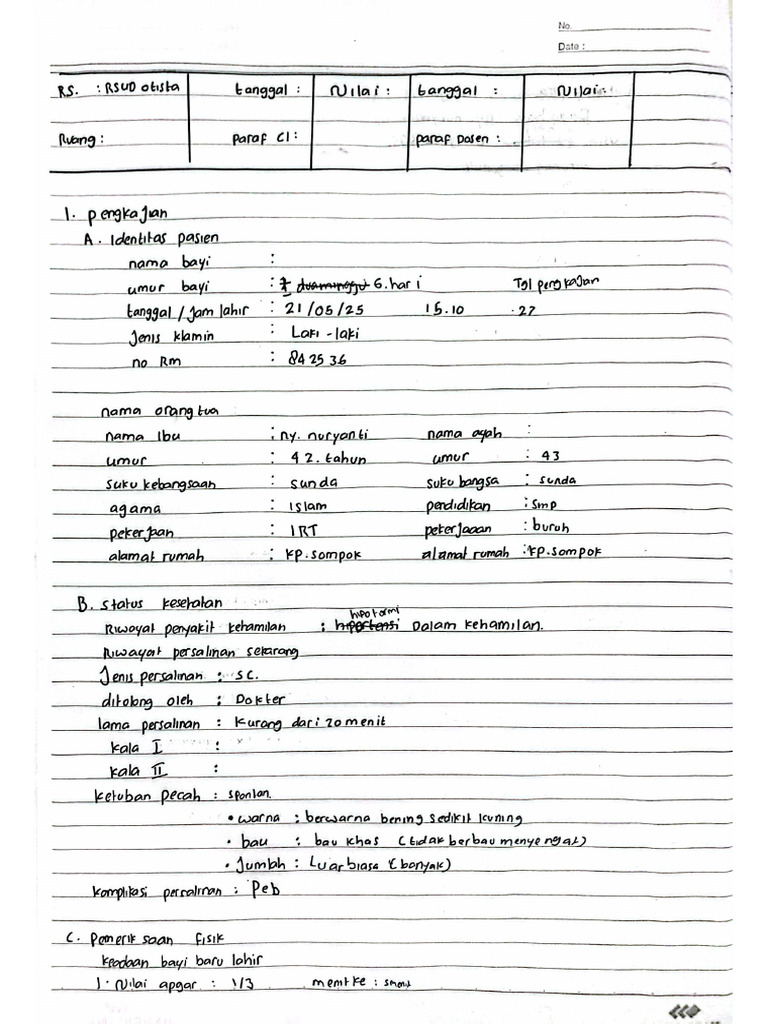 No.
Date :
RS. : RSUD otista tanggal : Nilai : tanggal : Nilai:
Ruang : paraf CI : paraf Dosen :
1. pengkajian
A. Identitas pasien
nama bayi :
umur bayi : 6. hari Tgl pengkajian
tanggal / Jam lahir : 21/05/25 15.10 .27
Jenis klamin : Laki - laki
no Rm : 842536
nama orang tua
nama Ibu : ny. nuryanti nama ayah :
umur : 42. tahun umur : 43
suku kebangsaan : sunda suku bangsa : sunda
agama : Islam pendidikan : smp
pekerjaan : IRT pekerjaaan : buruh
alamat rumah : kp. sompok alamat rumah : kp. sompok
B. Status kesehatan
Riwayat penyakit kehamilan : hipertensi Dalam kehamilan.
Riwayat persalinan sekarang
Jenis persalinan : SC.
ditolong oleh : Dokter
lama persalinan : kurang dari 20 menit
kala I :
kala II :
ketuban pecah : spontan.
• warna : berwarna bening sedikit kuning
• bau : bau khas (tidak berbau menyengat)
• Jumlah : Luar biasa (banyak)
komplikasi persalinan : Peb
C. Pemeriksaan Fisik
keadaan bayi baru lahir
1. Nilai apgar : 1/3 menit ke :